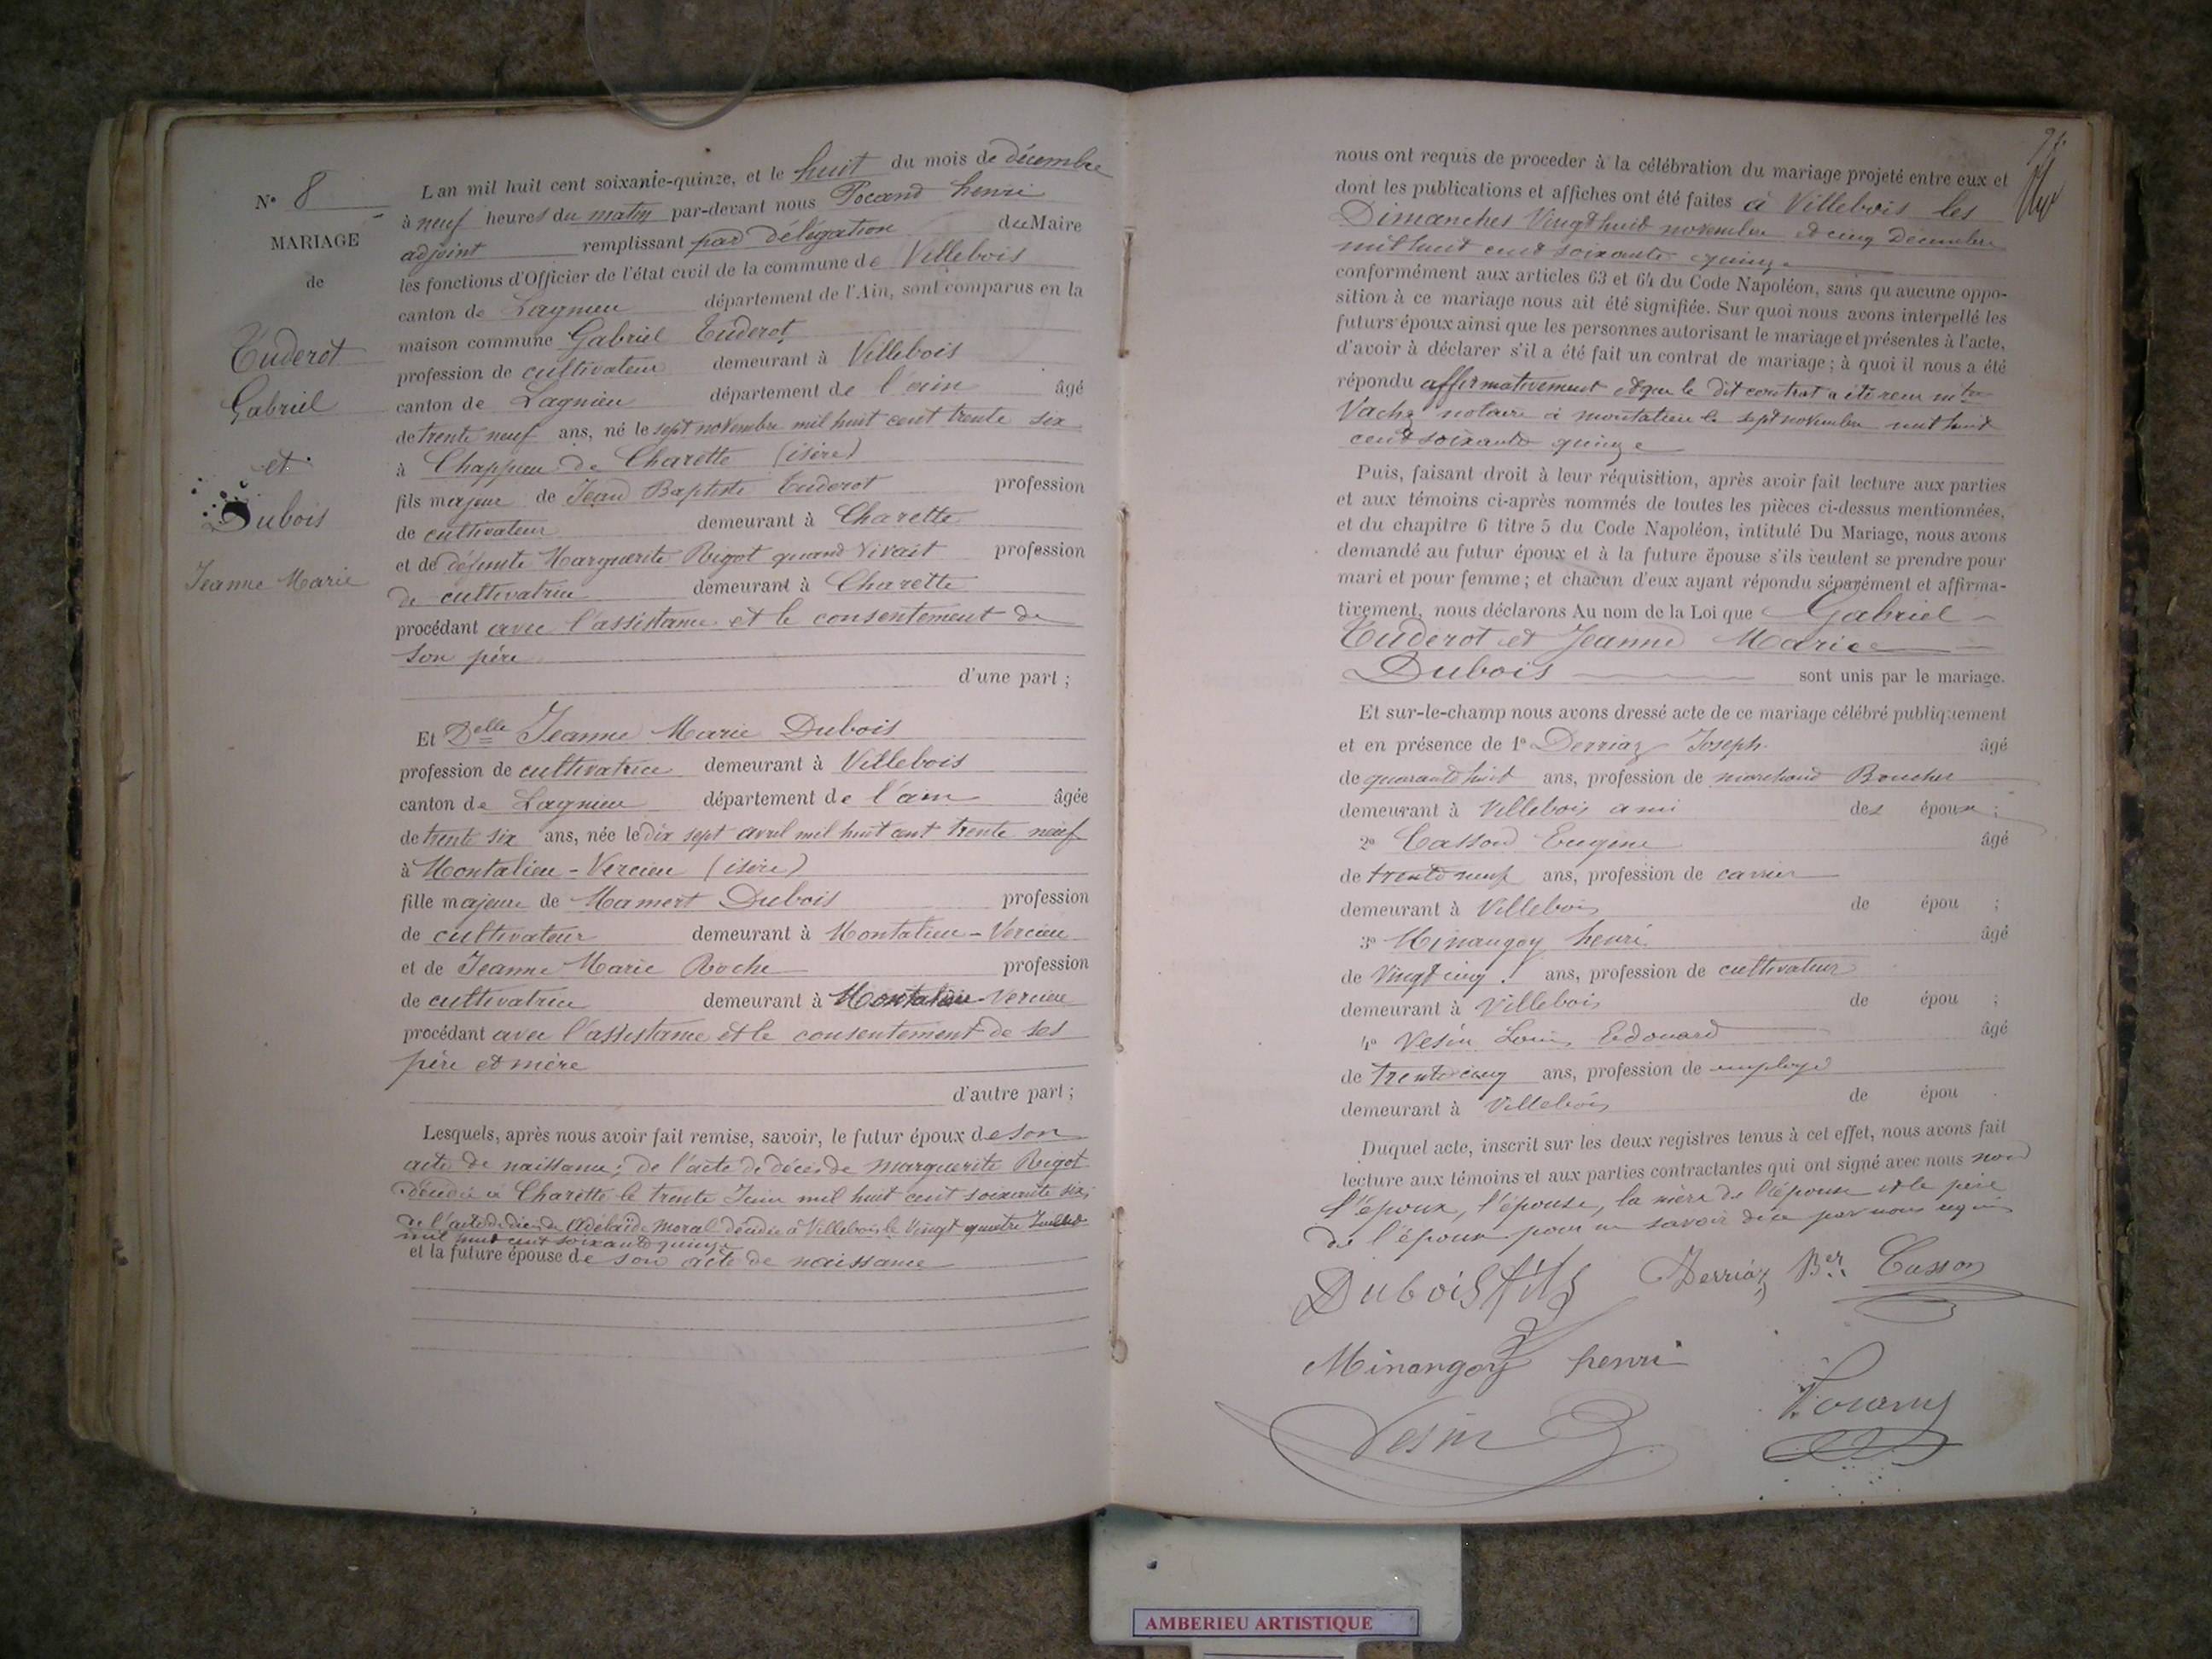 N° 8
MARIAGE
de
Tuderot
Gabriel
et
Dubois
Jeanne Marie
L'an mil huit cent soixante-quinze, et le huit du mois de décembre
à neuf heures du matin par-devant nous Pocand henri
adjoint remplissant par délégation du Maire
les fonctions d'Officier de l'état civil de la commune de Villebois
canton de Lagnieu département de l'Ain, sont comparus en la
maison commune Gabriel Tuderot
profession de cultivateur demeurant à Villebois
canton de Lagnieu département de l'ain âgé
de trente neuf ans, né le sept novembre mil huit cent trente six
à Charette (isère)
fils majeur de Jean Baptiste Tuderot profession
de cultivateur demeurant à Charette
et de défunte Marguerite Rigot quand vivait profession
de cultivatrice demeurant à Charette
procédant avec l'assistance et le consentement de
son père
d'une part ;
Et Delle Jeanne Marie Dubois
profession de cultivatrice demeurant à Villebois
canton de Lagnieu département de l'ain âgée
de trente six ans, née le dix sept avril mil huit cent trente neuf
à Montalieu - Vercieu (isère)
fille majeure de Mamert Dubois profession
de cultivateur demeurant à Montalieu - Vercieu
et de Jeanne Marie Roche profession
de cultivatrice demeurant à Montalieu-Vercieu
procédant avec l'assistance et le consentement de ses
père et mère
d'autre part ;
Lesquels, après nous avoir fait remise, savoir, le futur époux de son
acte de naissance ; de l'acte de décès de Marguerite Rigot
décédée à Charette le trente Juin mil huit cent soixante six,
de l'acte de décès de Adélaïde Moral décédée à Villebois le Vingt quatre Juillet
mil huit cent soixante quinze
et la future épouse de son acte de naissance
nous ont requis de proceder à la célébration du mariage projeté entre eux et
dont les publications et affiches ont été faites à Villebois les
Dimanches Vingt huit novembre et cinq Décembre
mil huit cent soixante quinze
conformément aux articles 63 et 64 du Code Napoléon, sans qu'aucune oppo-
sition à ce mariage nous ait été signifiée. Sur quoi nous avons interpellé les
futurs époux ainsi que les personnes autorisant le mariage et présentes à l'acte,
d'avoir à déclarer s'il a été fait un contrat de mariage ; à quoi il nous a été
répondu affirmativement et que le dit contrat a été reçu
Vachz notaire à montalieu le sept novembre mil huit
cent soixante quinze
Puis, faisant droit à leur réquisition, après avoir fait lecture aux parties
et aux témoins ci-après nommés de toutes les pièces ci-dessus mentionnées,
et du chapitre 6 titre 5 du Code Napoléon, intitulé Du Mariage, nous avons
demandé au futur époux et à la future épouse s'ils veulent se prendre pour
mari et pour femme ; et chacun d'eux ayant répondu séparément et affirma-
tivement, nous déclarons Au nom de la Loi que Gabriel
Tuderot et Jeanne Marie
Dubois sont unis par le mariage.
Et sur-le-champ nous avons dressé acte de ce mariage célébré publiquement
et en présence de 1° Derriaz Joseph âgé
de quarante huit ans, profession de marchand Boucher
demeurant à Villebois ami des époux ;
2° Casson Eugène âgé
de trente neuf ans, profession de carrier
demeurant à Villebois de épou ;
3° Minangoy henri âgé
de Vingt cinq ans, profession de cultivateur
demeurant à Villebois de épou ;
4° Vesin Louis Edouard âgé
de trente cinq ans, profession de employé
demeurant à Villebois de épou .
Duquel acte, inscrit sur les deux registres tenus à cet effet, nous avons fait
lecture aux témoins et aux parties contractantes qui ont signé avec nous non
l'époux, l'épouse, la mère de l'épouse et le père
de l'époux pour ne savoir de ce par nous requis
Dubois fils Derriaz Ber Casson
Minangoy henri
Vesin Pocand
AMBERIEU ARTISTIQUE